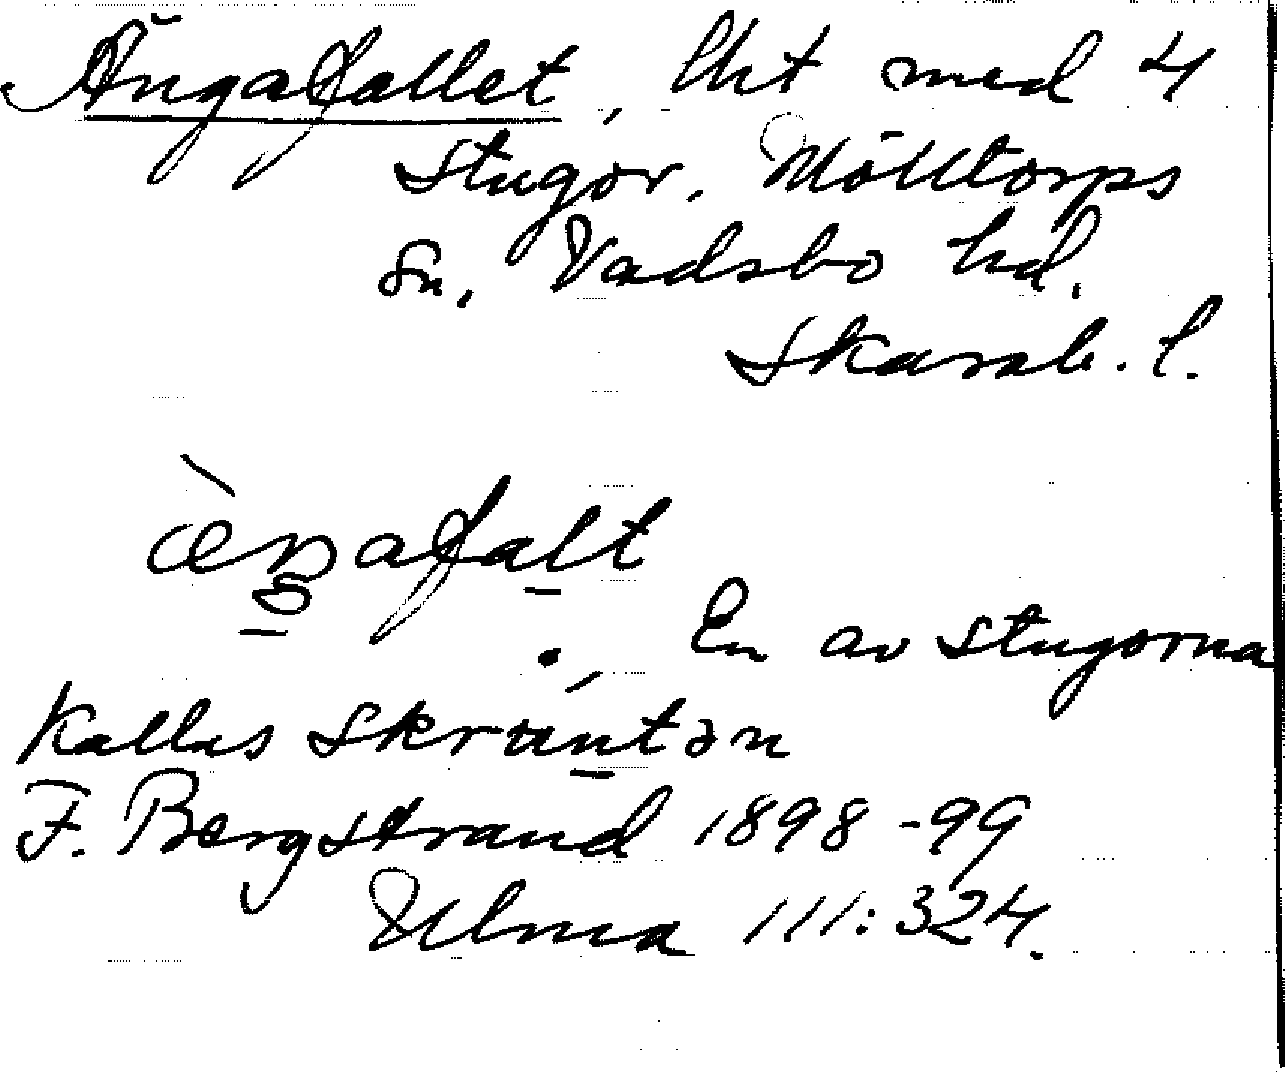 Ängafallet, lht med 4
stugor. Mölltorps
sn, Vadsbo hd.
Skarab. l.
En av stugorna
kallas
F. Bergstrand 1898-99
Ulma 111:324.